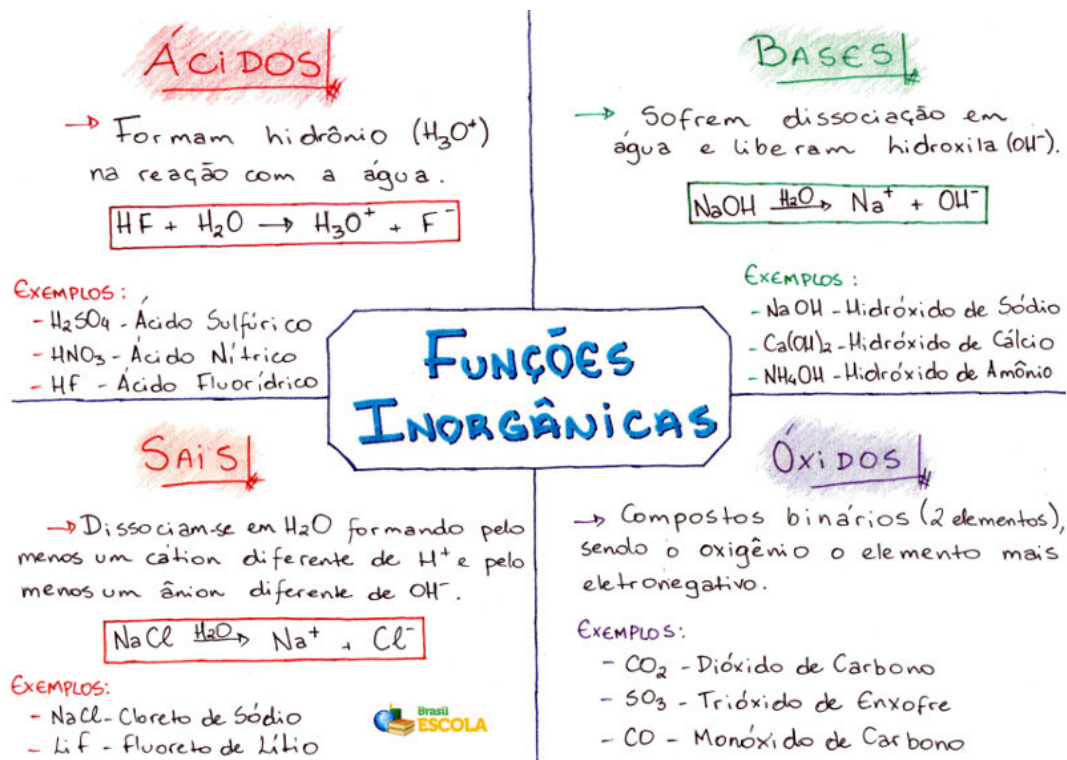 ÁCiDOS
→ Formam hidrônio (H₃O⁺)
na reação com a água.
HF + H₂O → H₃O⁺ + F⁻
EXEMPLOS:
- H₂SO₄ - Ácido Sulfúrico
- HNO₃ - Ácido Nítrico
- Hf - Ácido Fluorídrico
BASES
→ Sofrem dissociação em
água e liberam hidroxila (OH⁻).
NaOH H₂O→ Na⁺ + OH⁻
EXEMPLOS:
- NaOH - Hidróxido de Sódio
- Ca(OH)₂ - Hidróxido de Cálcio
- NH₄OH - Hidróxido de Amônio
FUNÇÕES
INORGÂNiCAS
SAiS
→ Dissociam-se em H₂O formando pelo
menos um cátion diferente de H⁺ e pelo
menos um ânion diferente de OH⁻.
NaCl H₂O→ Na⁺ + Cl⁻
EXEMPLOS:
- NaCl - Cloreto de Sódio
- Lif - Fluoreto de Lítio
Brasil
ESCOLA
ÓXiDOS
→ Compostos binários (2 elementos),
sendo o oxigênio o elemento mais
eletronegativo.
EXEMPLOS:
- CO₂ - Dióxido de Carbono
- SO₃ - Trióxido de Enxofre
- CO - Monóxido de Carbono